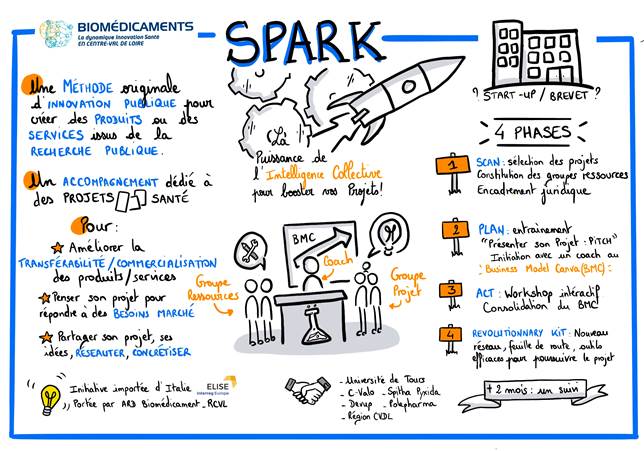 BIOMÉDICAMENTS
La dynamique Innovation Santé
EN CENTRE-VAL DE LOIRE
SPARK
Une MÉTHODE originale
d'INNOVATION PUBLIQUE pour
créer des PRODUITS ou des
SERVICES issus de la
RECHERCHE PUBLIQUE.
Un ACCOMPAGNEMENT dédié à
des PROJETS SANTÉ
Pour :
Améliorer la
TRANSFÉRABILITÉ/COMMERCIALISATION
des produits/services
Penser son projet pour
répondre à des BESOINS MARCHÉ
Partager son projet, ses
idées, RÉSEAUTER, CONCRÉTISER
Initiative importée d'Italie
Portée par ARD Biomédicament _ RCVL
ELISE
Interreg Europe
La
Puissance de
l'Intelligence Collective
pour booster vos Projets!
BMC
Coach
Groupe
Ressources
Groupe
Projet
- Université de Tours
- C-Valo - Spitha Pyxida
- Devup - Polepharma
- Région CVDL
? START-UP / BREVET ?
4 PHASES
1 SCAN : sélection des projets
Constitution des groupes ressources
Encadrement juridique
2 PLAN : entrainement
"Présenter son Projet : PiTCH"
Initiation avec un coach au
Business Model Canva (BMC) :
3 ACT : Workshop intéractif
Consolidation du BMC
4 REVOLUTIONNARY KIT : Nouveau
réseau, feuille de route, outils
efficaces pour poursuivre le projet
+ 2 mois : un suivi